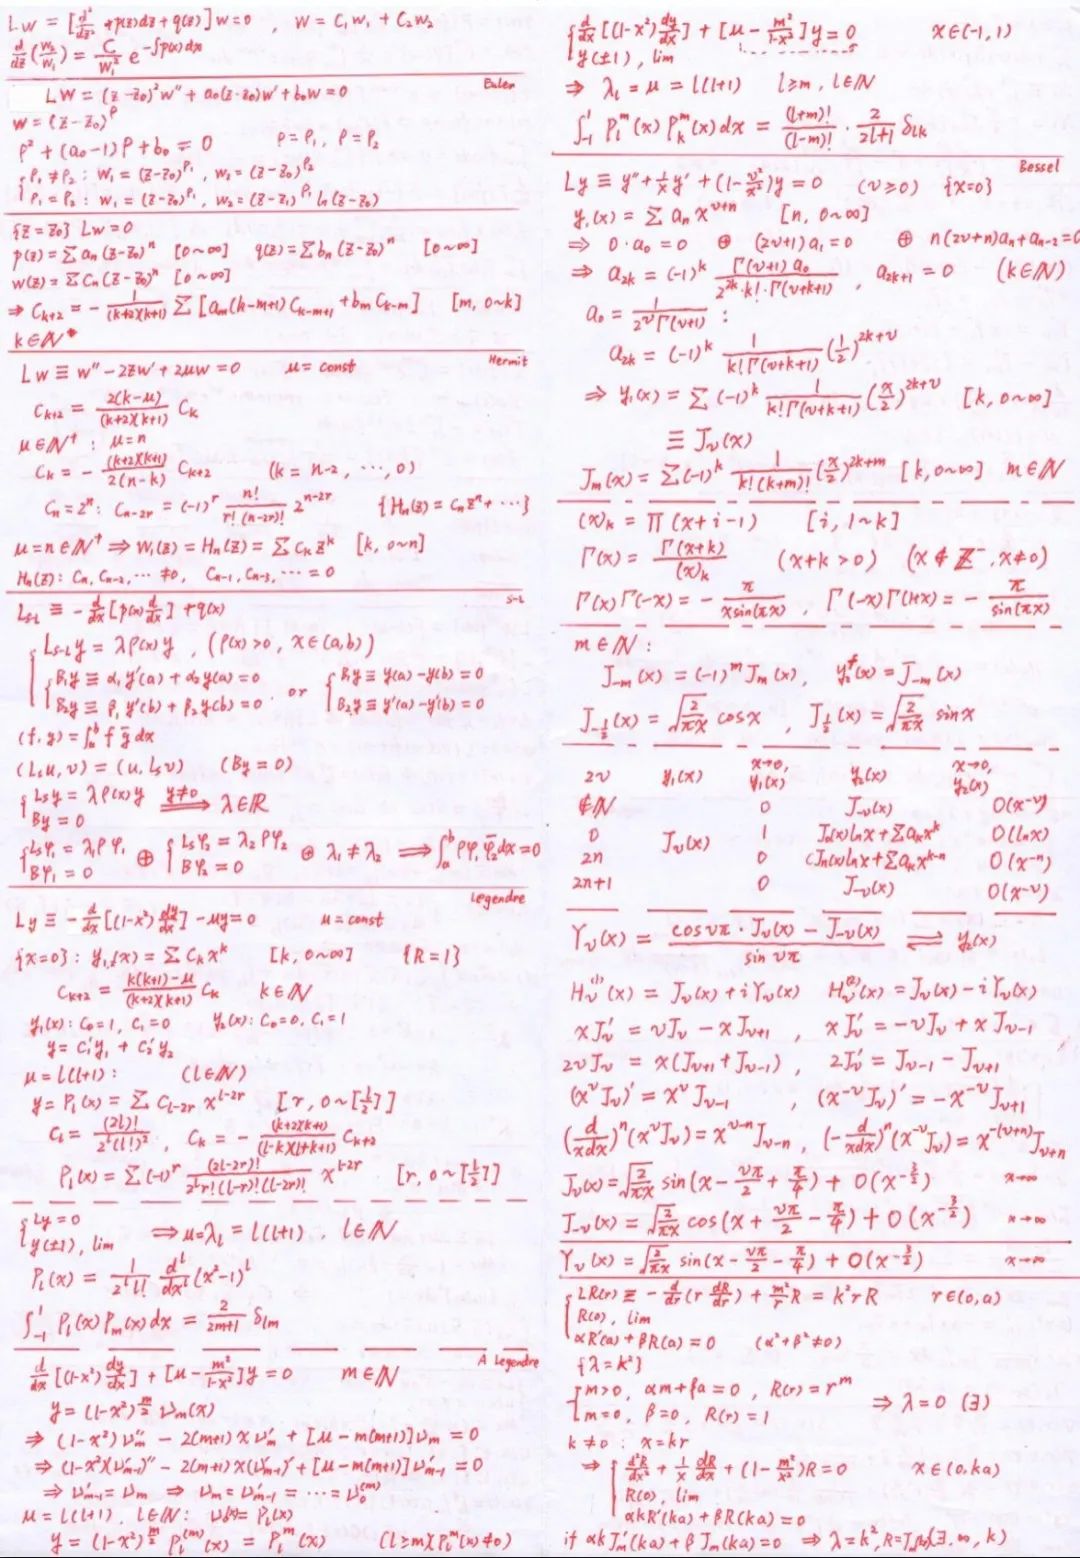 Lw = [d²/dz² + p(z)d/dz + q(z)]w = 0 , w = C₁w₁ + C₂w₂
d/dz(w₂/w₁) = C/w₁² e^{-∫p(x)dx}
Euler
Lw = (z-z₀)²w'' + a₀(z-z₀)w' + b₀w = 0
w = (z-z₀)^ρ
ρ² + (a₀-1)ρ + b₀ = 0 ρ=ρ₁, ρ=ρ₂
{ ρ₁ ≠ ρ₂ : w₁ = (z-z₀)^{ρ₁}, w₂ = (z-z₀)^{ρ₂}
ρ₁ = ρ₂ : w₁ = (z-z₀)^{ρ₁}, w₂ = (z-z₁)^{ρ₁} ln(z-z₀)
{z=z₀} Lw=0
p(z) = ∑aₙ(z-z₀)ⁿ [0~∞] q(z) = ∑bₙ(z-z₀)ⁿ [0~∞]
w(z) = ∑Cₙ(z-z₀)ⁿ [0~∞]
⇒ C_{k+2} = - 1/((k+2)(k+1)) ∑[a_m(k-m+1)C_{k-m+1} + b_m C_{k-m}] [m, 0~k]
k∈ℕ*
Hermit
Lw ≡ w'' - 2zw' + 2μw = 0 μ = const
C_{k+2} = 2(k-μ)/((k+2)(k+1)) C_k
μ∈ℕ⁺ : μ=n
C_k = - (k+2)(k+1)/(2(n-k)) C_{k+2} (k = n-2, ⋯, 0)
Cₙ = 2ⁿ : C_{n-2r} = (-1)^r n!/(r!(n-2r)!) 2^{n-2r} {Hₙ(z) = Cₙzⁿ + ⋯}
μ=n∈ℕ⁺ ⇒ w₁(z) = Hₙ(z) = ∑C_k z^k [k, 0~n]
Hₙ(z) : Cₙ, C_{n-2}, ⋯ ≠0, C_{n-1}, C_{n-3}, ⋯ = 0
S-L
L_{S-L} ≡ - d/dx[p(x)d/dx] + q(x)
{ L_{S-L}y = λρ(x)y , (ρ(x)>0, x∈(a,b))
{ B₁y ≡ α₁y'(a) + α₂y(a) = 0 or { B₁y ≡ y(a) - y(b) = 0
B₂y ≡ β₁y'(b) + β₂y(b) = 0 B₂y ≡ y'(a) - y'(b) = 0
(f, g) = ∫_a^b f ḡ dx
(L_s u, v) = (u, L_s v) (By = 0)
{ L_s y = λρ(x)y y≠0 ⟹ λ∈ℝ
By = 0
{ L_sφ₁ = λ₁ρφ₁ ⊕ { L_sφ₂ = λ₂ρφ₂ ⊕ λ₁ ≠ λ₂ ⟹ ∫_a^b ρφ₁φ̄₂dx = 0
Bφ₁ = 0 Bφ₂ = 0
Legendre
Ly ≡ - d/dx[(1-x²)dy/dx] - μy = 0 μ = const
{x=0} : y₁(x) = ∑C_k x^k [k, 0~∞] {R=1}
C_{k+2} = (k(k+1)-μ)/((k+2)(k+1)) C_k k∈ℕ
y₁(x) : C₀=1, C₁=0 y₂(x) : C₀=0, C₁=1
y = C₁'y₁ + C₂'y₂
μ = l(l+1) : (l∈ℕ)
y = P_l(x) = ∑ C_{l-2r} x^{l-2r} [r, 0~[l/2]]
C_l = (2l)!/(2^l(l!)²) , C_k = - (k+2)(k+1)/((l-k)(l+k+1)) C_{k+2}
P_l(x) = ∑(-1)^r (2l-2r)!/(2^l r!(l-r)!(l-2r)!) x^{l-2r} [r, 0~[l/2]]
{ Ly=0 ⇒ μ=λ_l = l(l+1), l∈ℕ
y(±1), lim
P_l(x) = 1/(2^l l!) d^l/dx^l (x²-1)^l
∫₋₁¹ P_l(x)P_m(x)dx = 2/(2m+1) δ_{lm}
A Legendre
d/dx[(1-x²)dy/dx] + [μ - m²/(1-x²)]y = 0 m∈ℕ
y = (1-x²)^{m/2} v_m(x)
⇒ (1-x²)v_m'' - 2(m+1)xv_m' + [μ - m(m+1)]v_m = 0
⇒ (1-x²)(v'_{m-1})'' - 2(m+1)x(v'_{m-1})' + [μ - m(m+1)]v'_{m-1} = 0
⇒ v'_{m-1} = v_m ⇒ v_m = v'_{m-1} = ⋯ = v₀^{(m)}
μ = l(l+1), l∈ℕ : v₀(x) = P_l(x)
y = (1-x²)^{m/2} P_l^{(m)}(x) = P_l^m(x) (l≥m)(P_l^m(x)≠0)
{ d/dx[(1-x²)dy/dx] + [μ - m²/(1-x²)]y = 0 x∈(-1,1)
y(±1), lim
⇒ λ_l = μ = l(l+1) l≥m, l∈ℕ
∫₋₁¹ P_l^m(x)P_k^m(x)dx = (l+m)!/(l-m)! · 2/(2l+1) δ_{lk}
Bessel
Ly ≡ y'' + 1/x y' + (1 - ν²/x²)y = 0 (ν≥0) {x=0}
y₁(x) = ∑aₙx^{ν+n} [n, 0~∞]
⇒ 0·a₀ = 0 ⊕ (2ν+1)a₁ = 0 ⊕ n(2ν+n)aₙ + a_{n-2} = 0
⇒ a_{2k} = (-1)^k Γ(ν+1)a₀/(2^{2k}·k!·Γ(ν+k+1)) , a_{2k+1} = 0 (k∈ℕ)
a₀ = 1/(2^νΓ(ν+1)) :
a_{2k} = (-1)^k 1/(k!Γ(ν+k+1)) (1/2)^{2k+ν}
⇒ y₁(x) = ∑(-1)^k 1/(k!Γ(ν+k+1)) (x/2)^{2k+ν} [k, 0~∞]
≡ J_ν(x)
J_m(x) = ∑(-1)^k 1/(k!(k+m)!) (x/2)^{2k+m} [k, 0~∞] m∈ℕ
(x)_k = Π(x+i-1) [i, 1~k]
Γ(x) = Γ(x+k)/(x)_k (x+k>0) (x∉ℤ⁻, x≠0)
Γ(x)Γ(-x) = - π/(x sin(πx)) , Γ(-x)Γ(1+x) = - π/sin(πx)
m∈ℕ :
J_{-m}(x) = (-1)^m J_m(x), y₂^f(x) = J_{-m}(x)
J_{-1/2}(x) = √(2/πx) cosx J_{1/2}(x) = √(2/πx) sinx
2ν y₁(x) x→0, y₁(x) y₂(x) x→0, y₂(x)
∉ℕ 0 J_{-ν}(x) O(x^{-ν})
0 J_ν(x) 1 J₀(x)lnx+∑a_k x^k O(lnx)
2n 0 cJₙ(x)lnx+∑a_k x^{k-n} O(x^{-n})
2n+1 0 J_{-ν}(x) O(x^{-ν})
Y_ν(x) = (cosνπ · J_ν(x) - J_{-ν}(x))/sin νπ ⇌ y₂(x)
H_ν^{(1)}(x) = J_ν(x) + iY_ν(x) H_ν^{(2)}(x) = J_ν(x) - iY_ν(x)
xJ_ν' = νJ_ν - xJ_{ν+1} , xJ_ν' = -νJ_ν + xJ_{ν-1}
2νJ_ν = x(J_{ν+1} + J_{ν-1}) , 2J_ν' = J_{ν-1} - J_{ν+1}
(x^νJ_ν)' = x^νJ_{ν-1} , (x^{-ν}J_ν)' = -x^{-ν}J_{ν+1}
(d/xdx)ⁿ(x^νJ_ν) = x^{ν-n}J_{ν-n} , (-d/xdx)ⁿ(x^{-ν}J_ν) = x^{-(ν+n)}J_{ν+n}
J_ν(x) = √(2/πx) sin(x - νπ/2 + π/4) + O(x^{-3/2}) x→∞
J_{-ν}(x) = √(2/πx) cos(x + νπ/2 - π/4) + O(x^{-3/2}) x→∞
Y_ν(x) = √(2/πx) sin(x - νπ/2 - π/4) + O(x^{-3/2}) x→∞
{ LR(r) ≡ - d/dr(r dR/dr) + m²/r R = k²rR r∈(0,a)
R(0), lim
αR'(a) + βR(a) = 0 (α²+β²≠0)
{λ=k²}
{ m>0, αm+βa=0, R(r)=r^m ⇒ λ=0 (∃)
m=0, β=0, R(r)=1
k≠0 : x=kr
⇒ { d²R/dx² + 1/x dR/dx + (1 - m²/x²)R = 0 x∈(0,ka)
R(0), lim
αkR'(ka) + βR(ka) = 0
if αkJ_m'(ka) + βJ_m(ka) = 0 ⇒ λ=k², R=J_m(x) (∃, ∞, k)